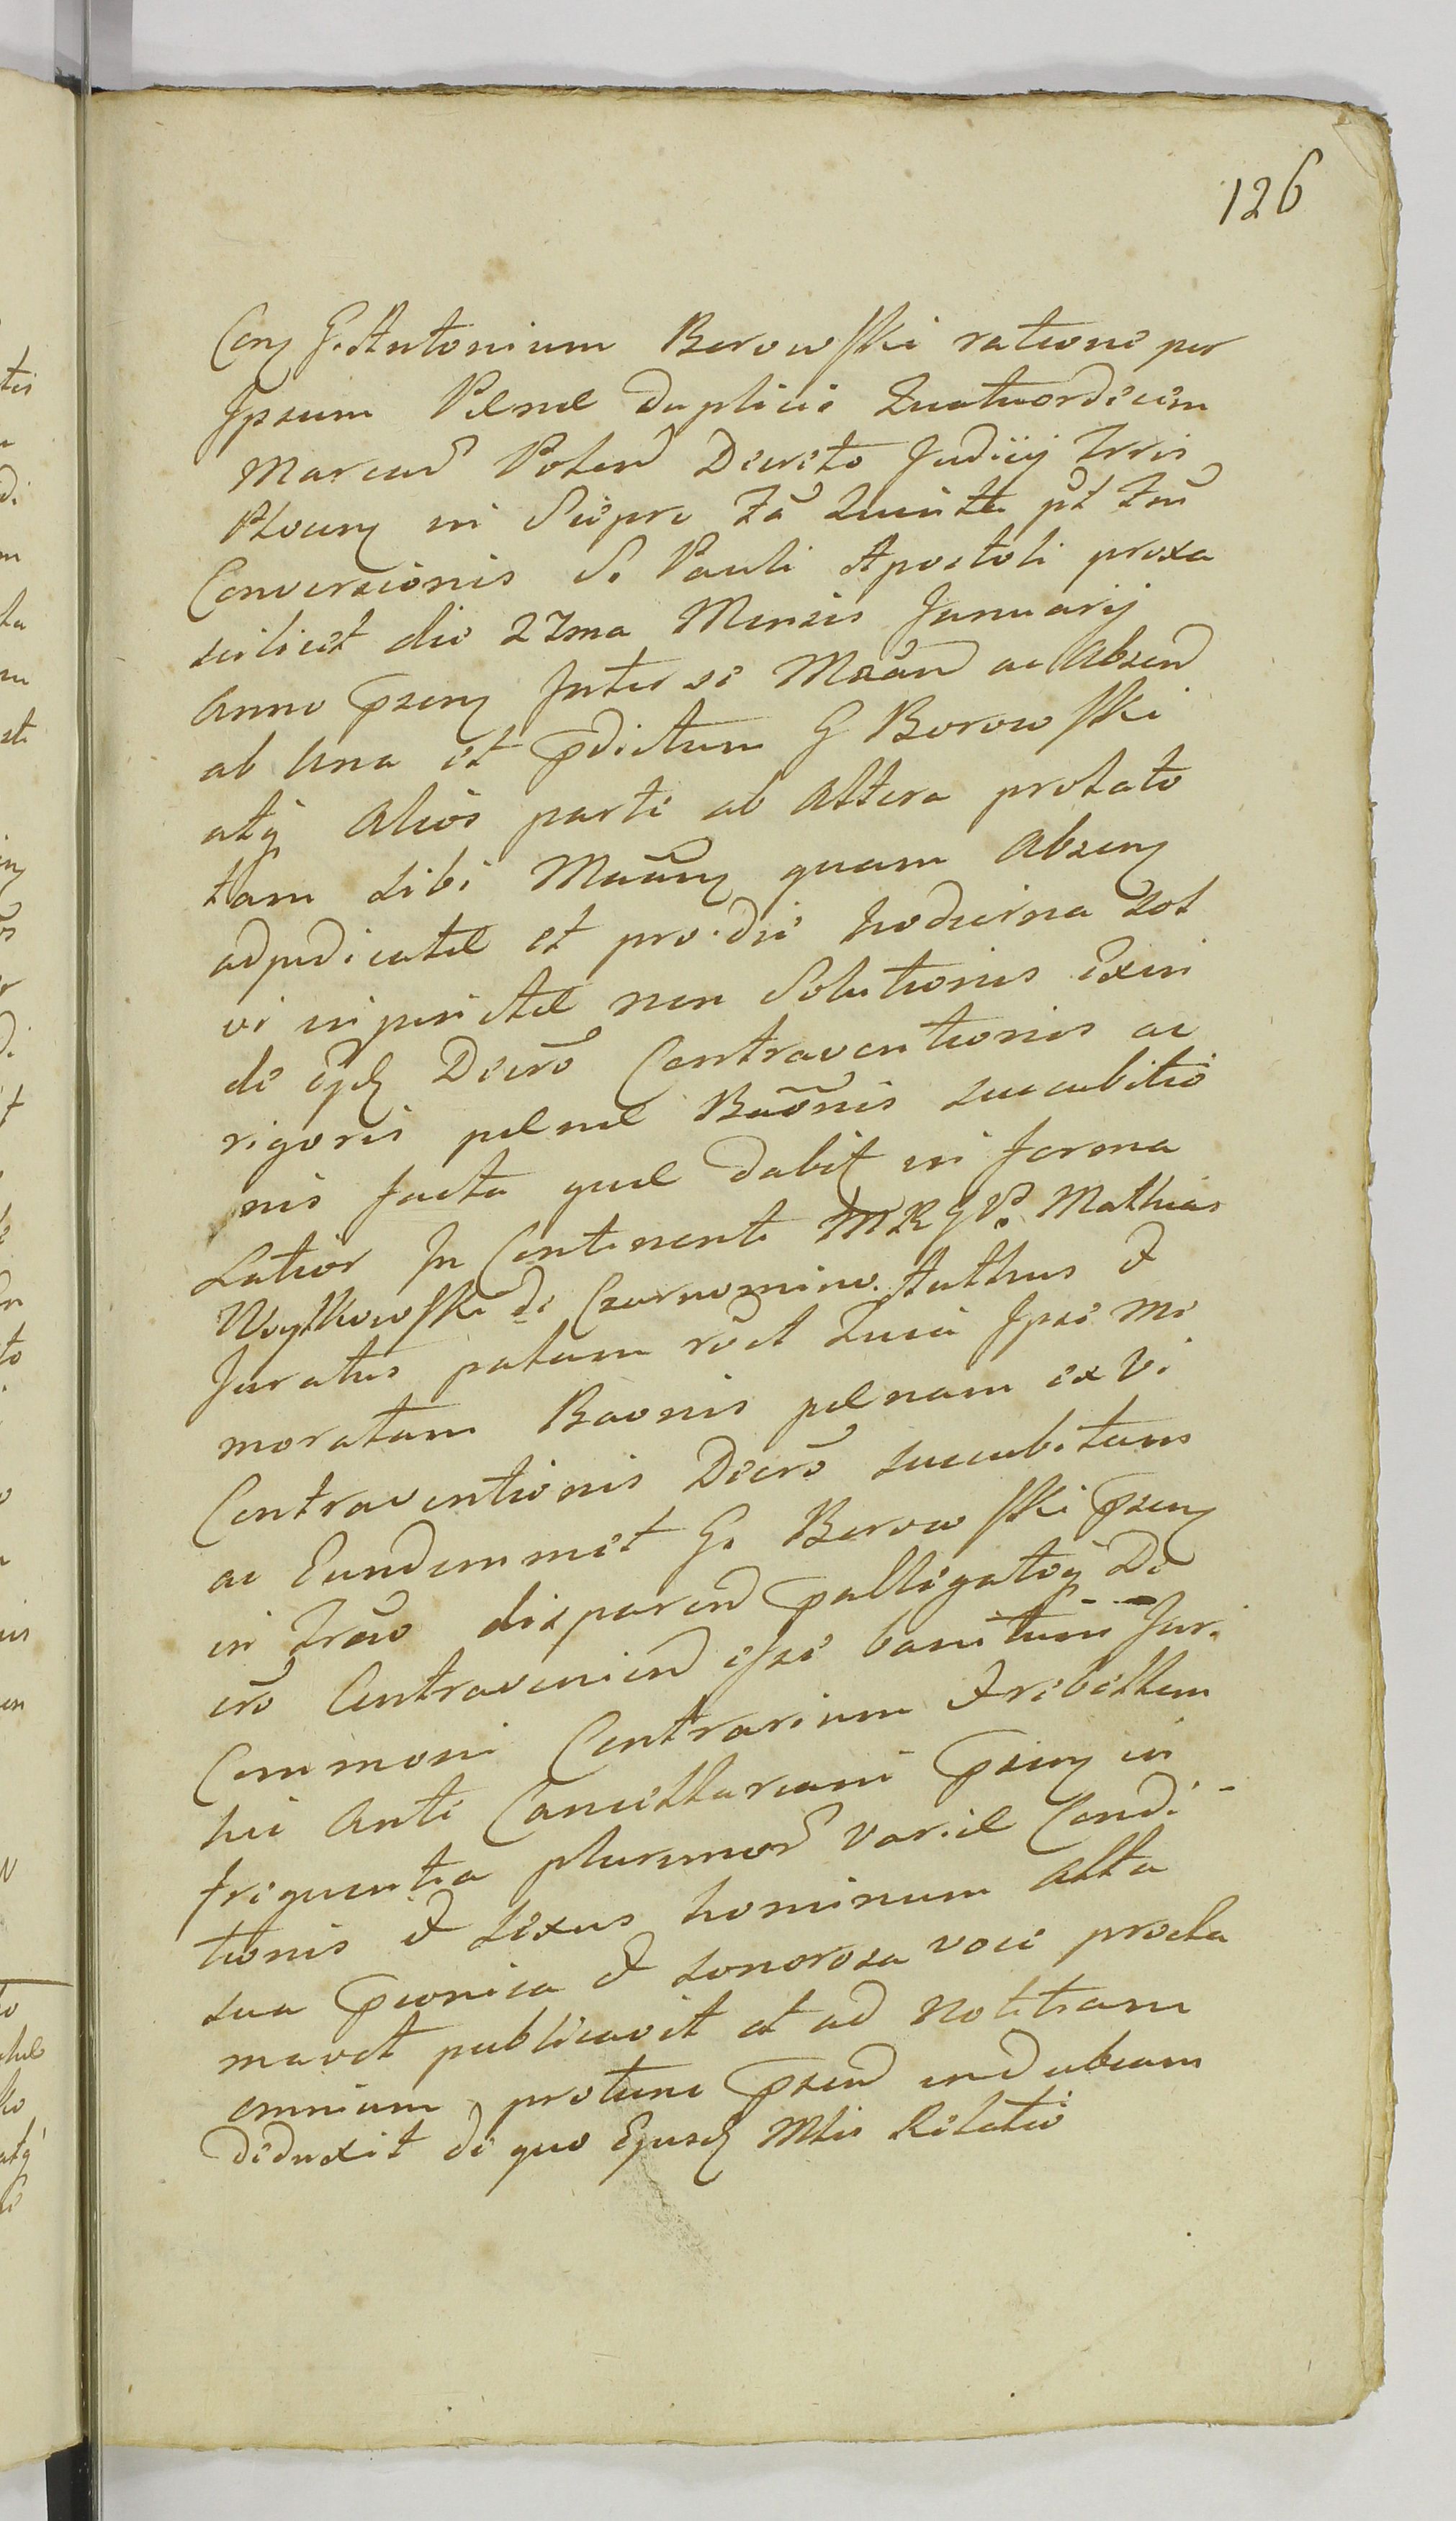 126
Con G. Antonium Borowski ratione per
Ipsum Pænæ duplicis Quatuordecim
Marcarū Polon Decreto Judicij Trris
Plocen in Sierpc Fā Quinta pt Fm
Conversionis S. Pauli Apostoli proxa
scilicet die 27ma Mensis Januarij
Anno præn Inter se Mrān ac Absen
ab una et pdictum G Borowski
atq alios parte ab altera prolato
tam sibi Mrān quam Absen
adjudicatæ et pro die hodierna sol
vi injunctæ non Solutionis exin
de ejusd Decrō Contraventionis ac
rigoris pænæ Bāonis succubitio
nis facta quæ dabit in forma
Latior In Continenti MRGP. Mathias
Woytkowski de Czarnomino Authus &
Juratus palam rōct Quia Ipse me
moratam Baonis pænam ex vi
Contraventionis Decrō succubitum
ac Eundemmet G. Borowski præn
in Trāo disparen palligatoq De
crō Contravenien esse banitum Juri
Communi Contrarium & rebellem
hic Ante Cancellariam præn in
frequentia plurimor variæ Condi-
tionis & sexus hominum alta
sua pconica & sonorosa voce procla
mavit publicavit et ad notitiam
omnium protunc præn indubiam
deduxit de quo Ejusd Mlis Relatio